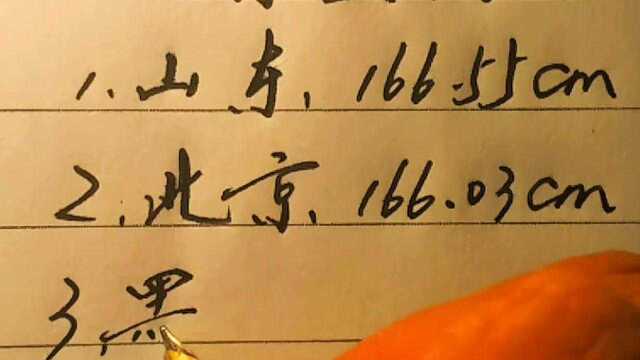 1.山东，166.55cm
2.北京，166.03cm
3.黑